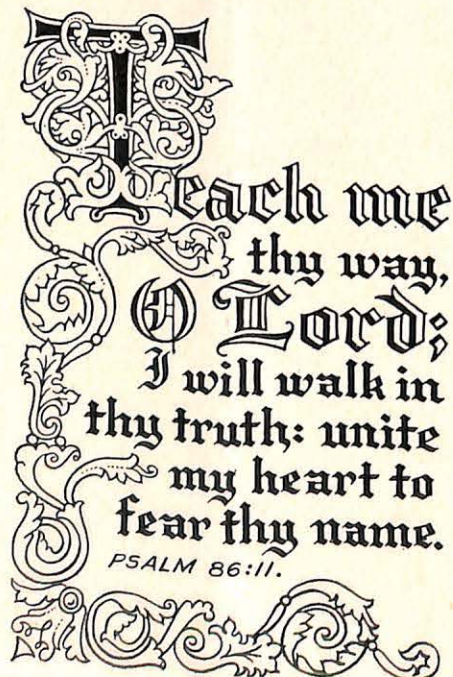 Teach me
thy way,
O Lord;
I will walk in
thy truth: unite
my heart to
fear thy name.
PSALM 86:11.